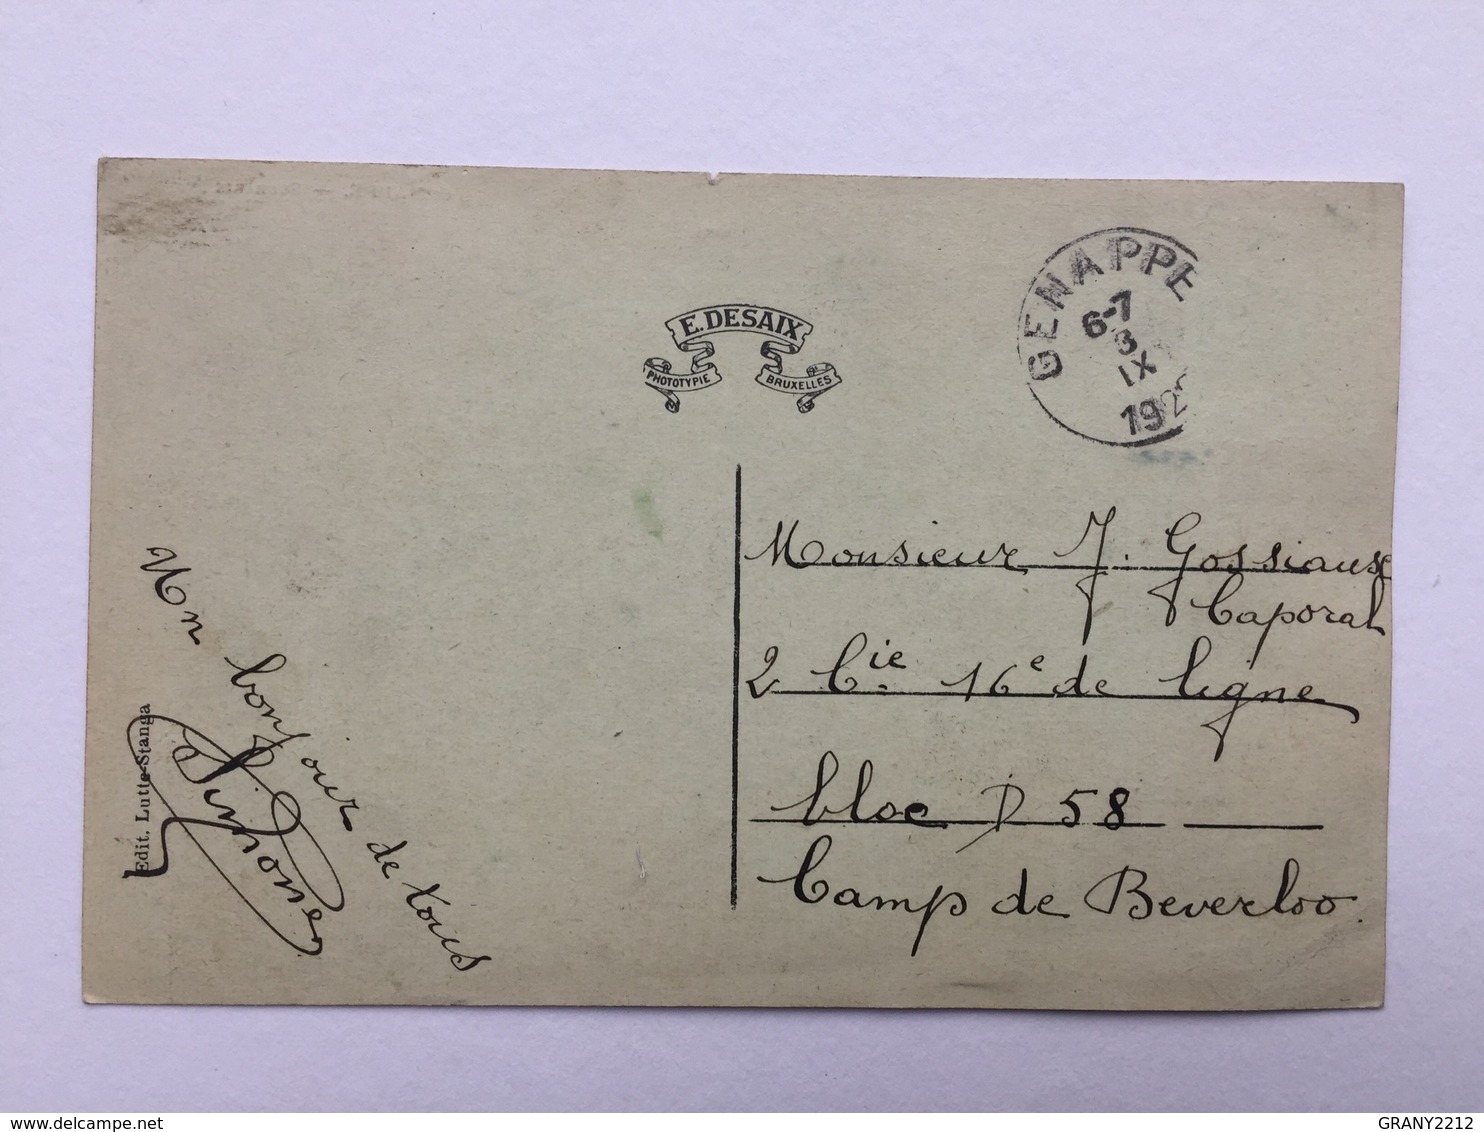 E. DESAIX
PHOTOTYPIE BRUXELLES
GENAPPE
6-7
3
IX
192
Monsieur J. Gossiaux
Caporal
2 Cie 16e de ligne
bloc D 58
Camp de Beverloo.
Un bonjour de tous
Simone
Edit. Lutte-Stanga
delcampe.net
GRANY2212